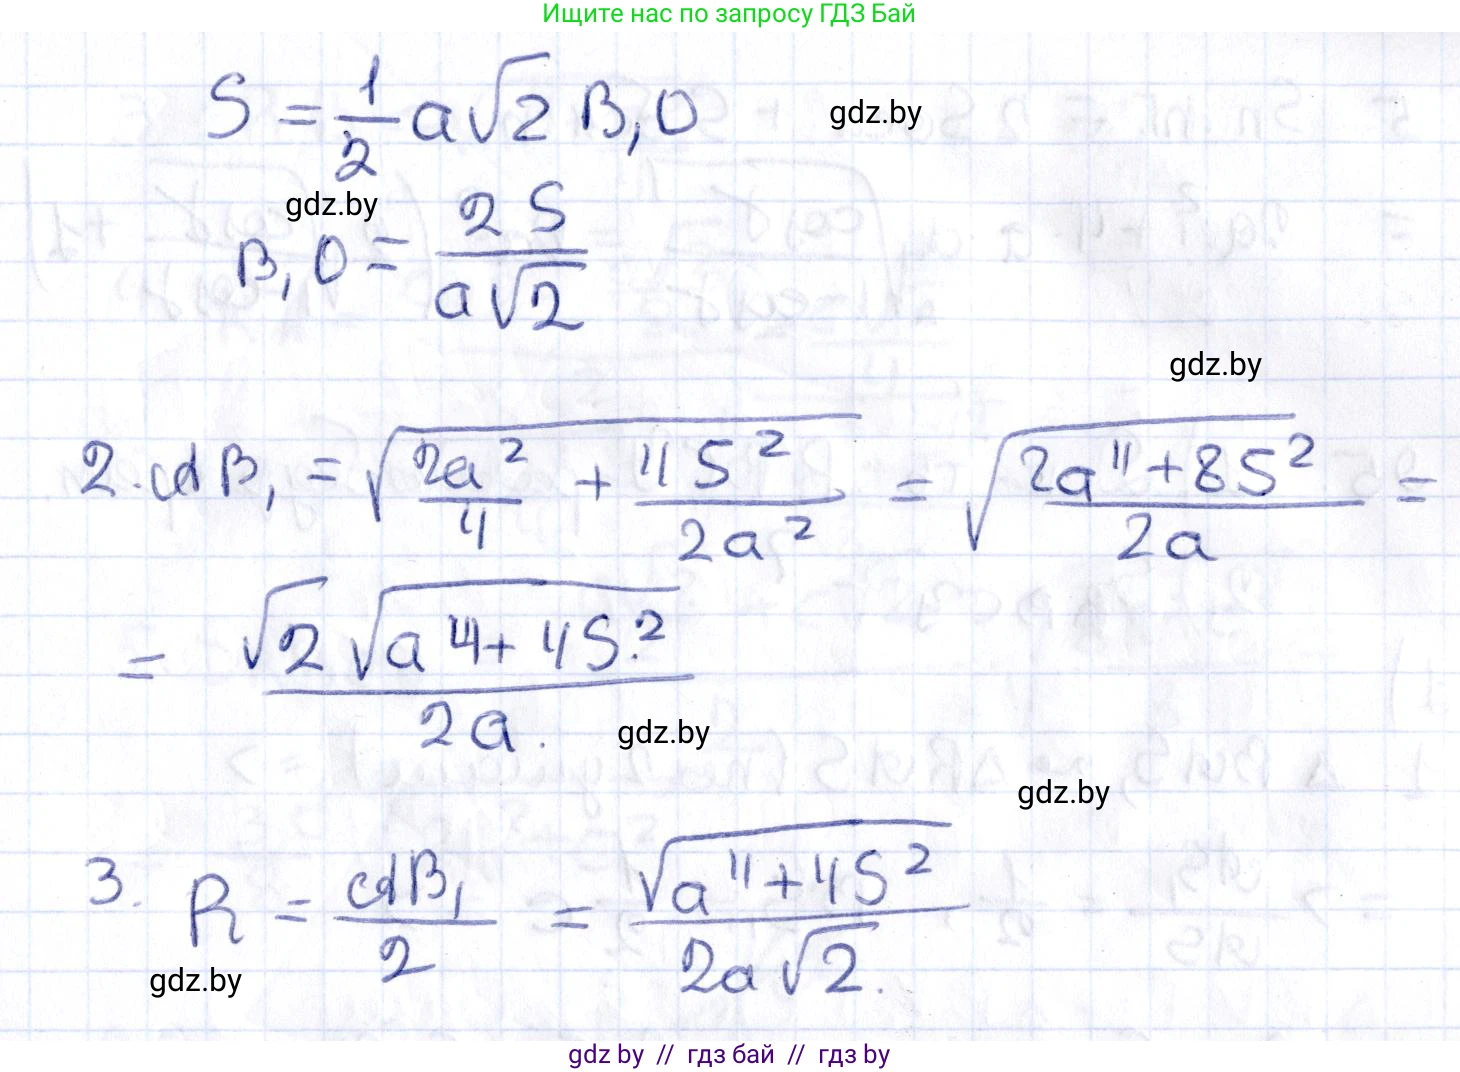 Ищите нас по запросу ГДЗ Бай
S = 1/2 a√2 B₁O
gdz.by
gdz.by
B₁O = 2S / a√2
gdz.by
2. AB₁ = √(2a²/4 + 4S²/2a²) = √(2a⁴ + 8S²)/2a =
= √2 √(a⁴ + 4S²) / 2a.
gdz.by
gdz.by
3. R = AB₁/2 = √(a⁴ + 4S²) / 2a√2.
gdz.by
gdz by // гдз бай // гдз by